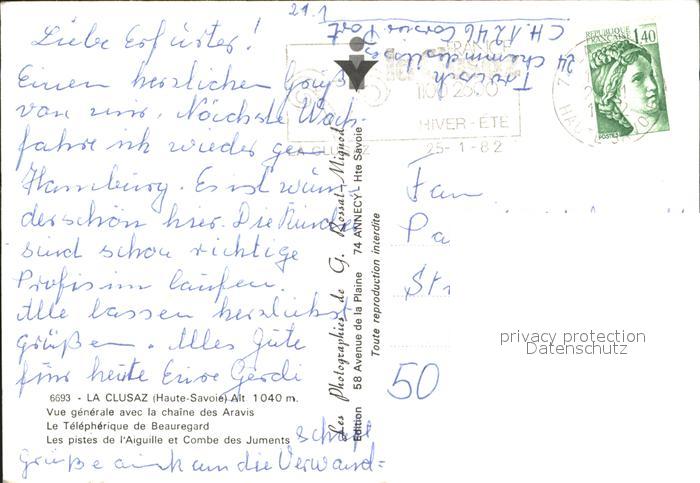 21.1
Liebe Erfurter!
Einen herzlichen Gruß
von mir. Nächste Woch
fahre ich wieder gen
Hamburg. Es ist wun
derschön hier. Die Kinder
sind schon richtige
Profis im laufen.
Alle lassen herzlichst
grüßen. Alles Gute
für heute Eure Gerdi
schöne
Grüße auch an die Verwand=
6693 - LA CLUSAZ (Haute-Savoie) Alt 1040 m.
Vue générale avec la chaîne des Aravis
Le Téléphérique de Beauregard
Les pistes de l'Aiguille et Combe des Juments
Les Photographies de G. Rossat-Mignod
Edition 58 Avenue de la Plaine 74 ANNECY - Hte Savoie
Toute reproduction interdite
24 Chemin des
CH. 1246 Corsier Port
FRANCE
1100 2600
HIVER-ÉTÉ
LA CLUSAZ
25-1-82
REPUBLIQUE
FRANÇAISE
1,40
POSTES
Fam
Pa
Str
50
privacy protection
Datenschutz